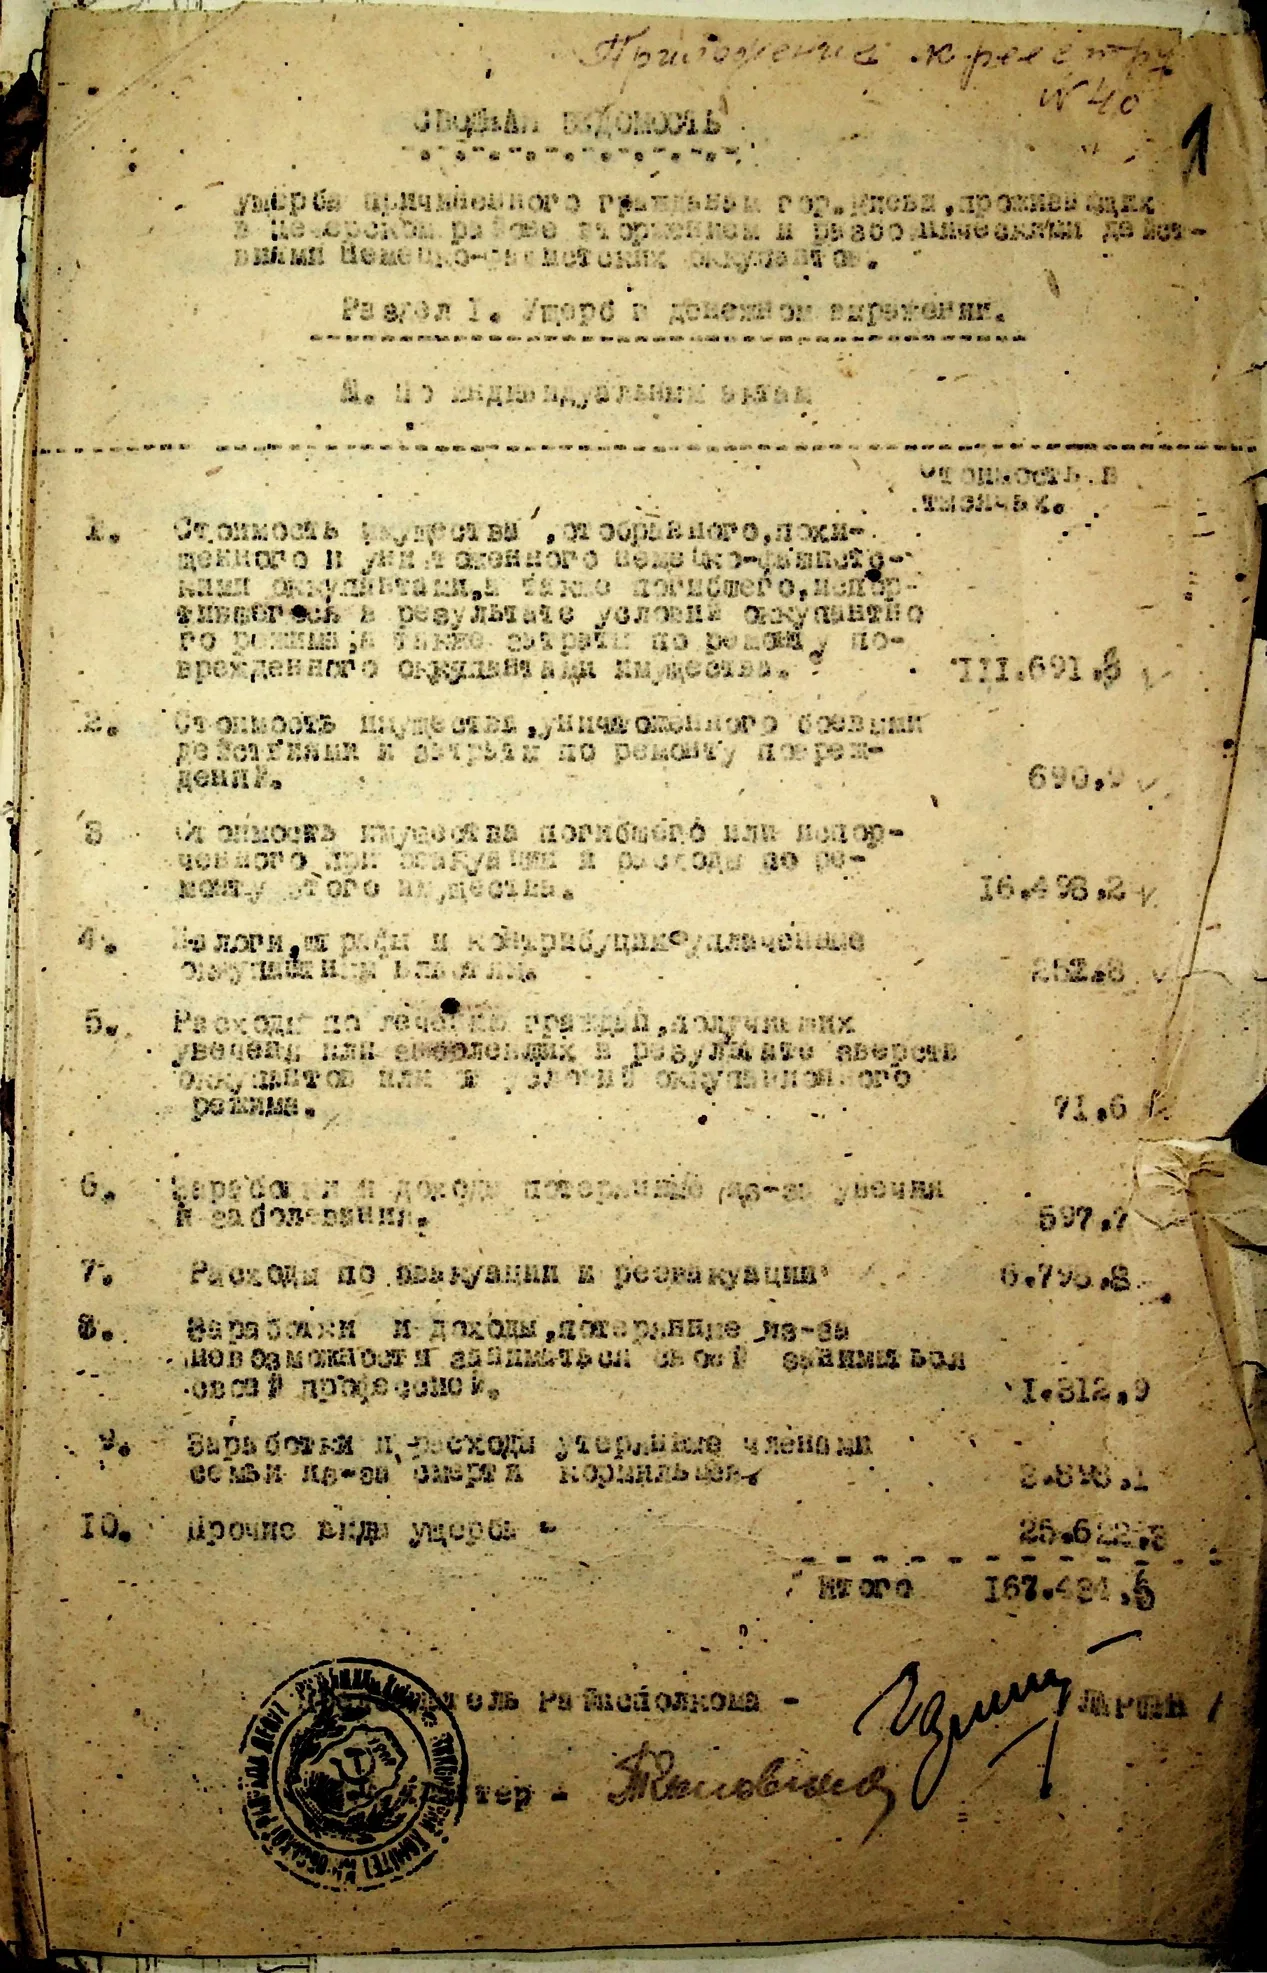 Приложение к реестру
№ 40
1
СВОДНАЯ ВЕДОМОСТЬ
ущерба причиненного гражданам гор.Киева,проживающих
в Печерском районе вторжением и разбойническими дейст-
виями немецко-фашистских оккупантов.
Раздел I. Ущерб в денежном выражении.
А. По индивидуальным актам
Стоимость в
тысячах.
1. Стоимость имущества ,отобранного,похи-
щенного и уничтоженного немецко-фашистс-
кими оккупантами,а также погибшего,испор-
тившегося в результате условий оккупантно
го режима,а также затраты по ремонту по-
врежденного оккупантами имущества. III.691.8
2. Стоимость имущества,уничтоженного боевыми
действиями и затраты по ремонту повреж-
дений. 690,9
3 Стоимость имущества погибшего или испор-
ченного при эвакуации и расходы по ре-
монту этого имущества. 16.498.2
4. Налоги,штрафы и контрибуции уплаченные
оккупантным властям. 252.8
5. Расходы по лечению граждан,получивших
увечья или заболевших в результате зверств
оккупантов или от условий оккупационного
режима. 71.6
6. Заработки и доходы потерянные из-за увечия
и заболевания. 597.7
7. Расходы по эвакуации и реэвакуации 6.798.8
8. Заработки и доходы,потерянные из-за
невозможности заниматься своей
своей профессией. I.312.9
9. Заработки и расходы утерянные членами
семьи из-за смерти кормильцев. 3.898.I
10. Прочие виды ущерба - 25.622.8
Итого 167.434.6
Председатель Райисполкома -
тер -